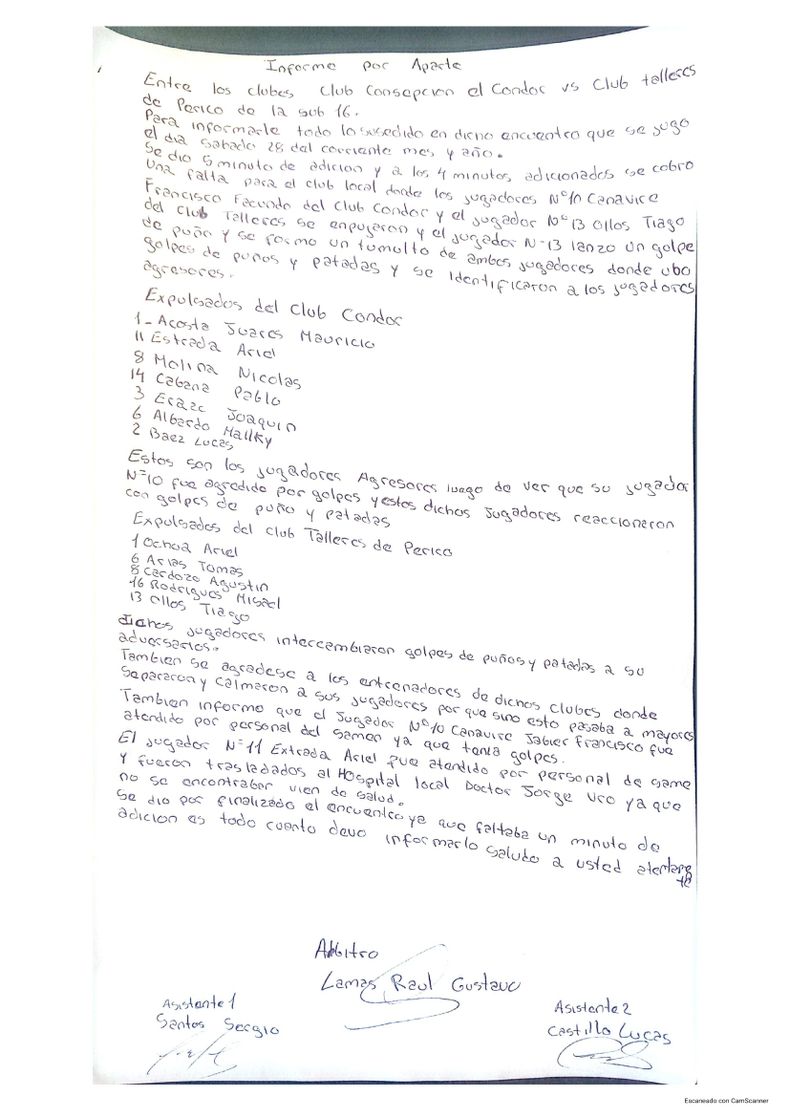 Informe por Aparte
Entre los clubes Club Consepcion el Condor vs Club talleres
de Perico de la sub 16.
Para informarle todo lo sucedido en dicho encuentro que se jugo
el dia sabado 28 del corriente mes y año.
Se dio 5 minuto de adicion y a los 4 minutos, adicionados se cobro
una falta para el club local donde los jugadores N°10 Canavire
Francisco Facundo del Club Condor y el jugador N°13 Ollos Tiago
del Club Talleres se enpujaron y el jugador N-13 lanzo un golpe
de puño y se formo un tumolto de ambos jugadores donde ubo
golpes de puños y patadas y se identificaron a los jugadores
agresores.
Expulsados del Club Condor
1- Acosta Juares Mauricio
11 Estrada Ariel
8 Molina Nicolas
14 Cabana Pablo
3 Erazo Joaquin
6 Albardo Mallky
2 Baez Lucas
Estos son los jugadores Agresores luego de ver que su jugador
N°10 fue agredido por golpes y estos dichos jugadores reaccionaron
con golpes de puño y patadas
Expulsados del club Talleres de Perico
1 Ochoa Ariel
6 Arias Tomas
8 Cardozo Agustin
16 Rodrigues Misael
13 Ollos Tiago
dichos jugadores intercambiaron golpes de puños y patadas a su
adversarios.
Tambien se agradese a los entrenadores de dichos clubes donde
separaron y calmaron a sus jugadores por que sino esto pasaba a mayores
Tambien informo que el Jugador N°10 Canavire Jabier Francisco fue
atendido por personal del samen ya que tenia golpes.
El jugador N°11 Extrada Ariel fue atendido por personal de same
y fueron trasladados al Hospital local Doctor Jorge Uro ya que
no se encontraber vien de salud.
Se dio por finalizado el encuentro ya que faltaba un minuto de
adicion es todo cuanto devo informarlo saludo a usted atentame
te
Arbitro
Lamas Raul Gustavo
Asistente 1
Santos Sergio
Asistente 2
Castillo Lucas
Escaneado con CamScanner